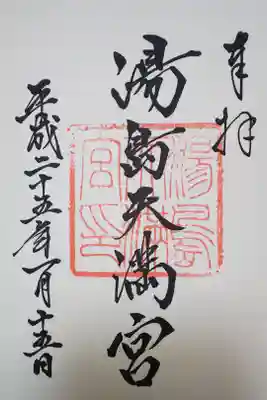 奉拝
湯島天満宮
平成二十五年一月十五日